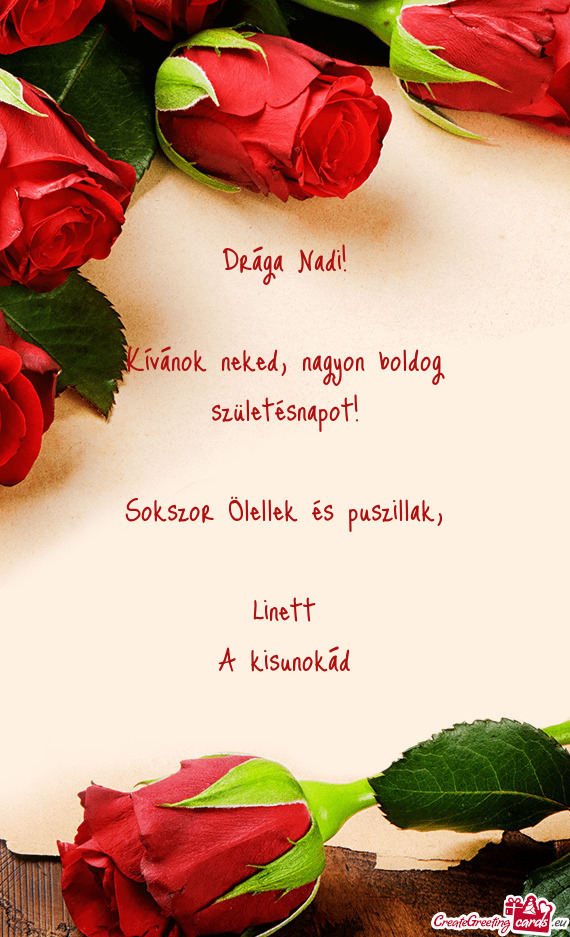 Drága Nadi!
Kívánok neked, nagyon boldog
születésnapot!
Sokszor Ölellek és puszillak,
Linett
A kisunokád
CreateGreeting cards .eu